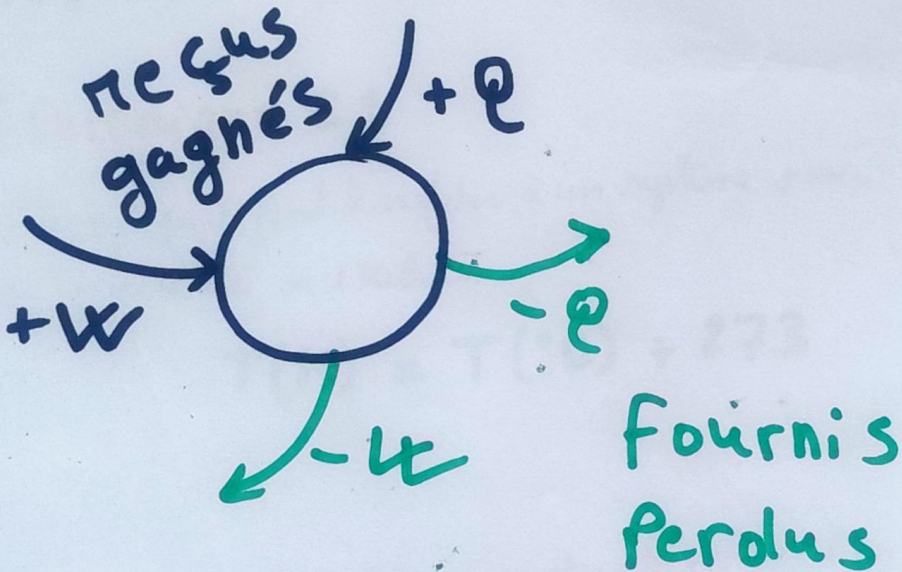 reçus
gagnés
+Q
+W
-Q
-W
T(°C) + 273
Fournis
Perdus